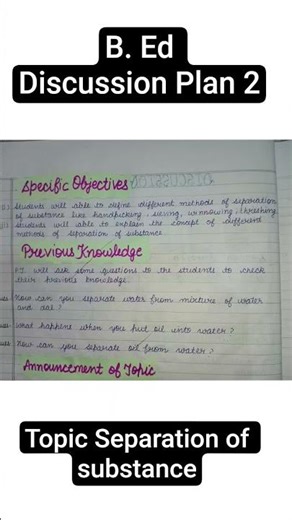 B. Ed
Discussion Plan 2
DISCUSSION
Specific Objectives
Students will able to define different methods of separation
of substance like handpicking, seiving, winnowing, threshing.
Students will able to explain the concept of different
methods of separation of substance
Previous Knowledge
P.T. will ask some questions to the students to check
their previous knowledge.
How can you separate water from mixture of water
and dal?
What happens when you put oil into water?
How can you separate oil from water?
Announcement of Topic
Topic Separation of
substance